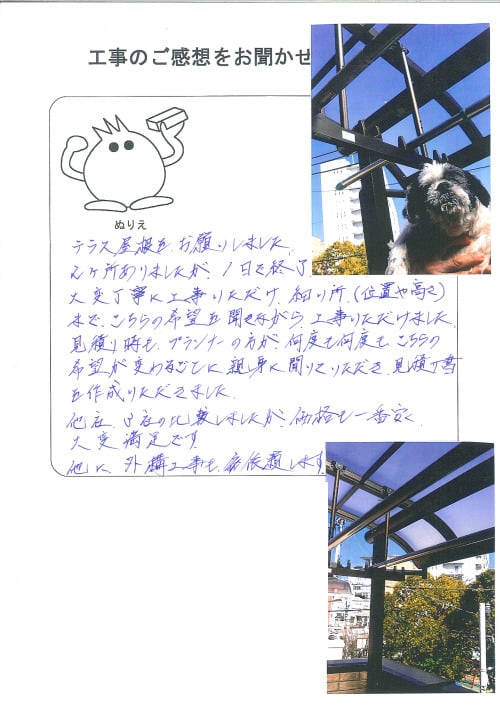 工事のご感想をお聞かせ
ぬりえ
テラス屋根を、お願いしました。
2ヶ所ありましたが、1日で終了
大変丁寧に工事いただけ、細い所、(位置や高さ)
まで、こちらの希望を聞きながら、工事いただけました。
見積り時も、プランナーの方が、何度も何度も、こちらの
希望が変わるごとに、親身に聞いていただき、見積丁書
を作成いただきました。
他社、3社の比較しましたが、価格も一番安く、
大変満足です
他に、外構工事も、依頼します